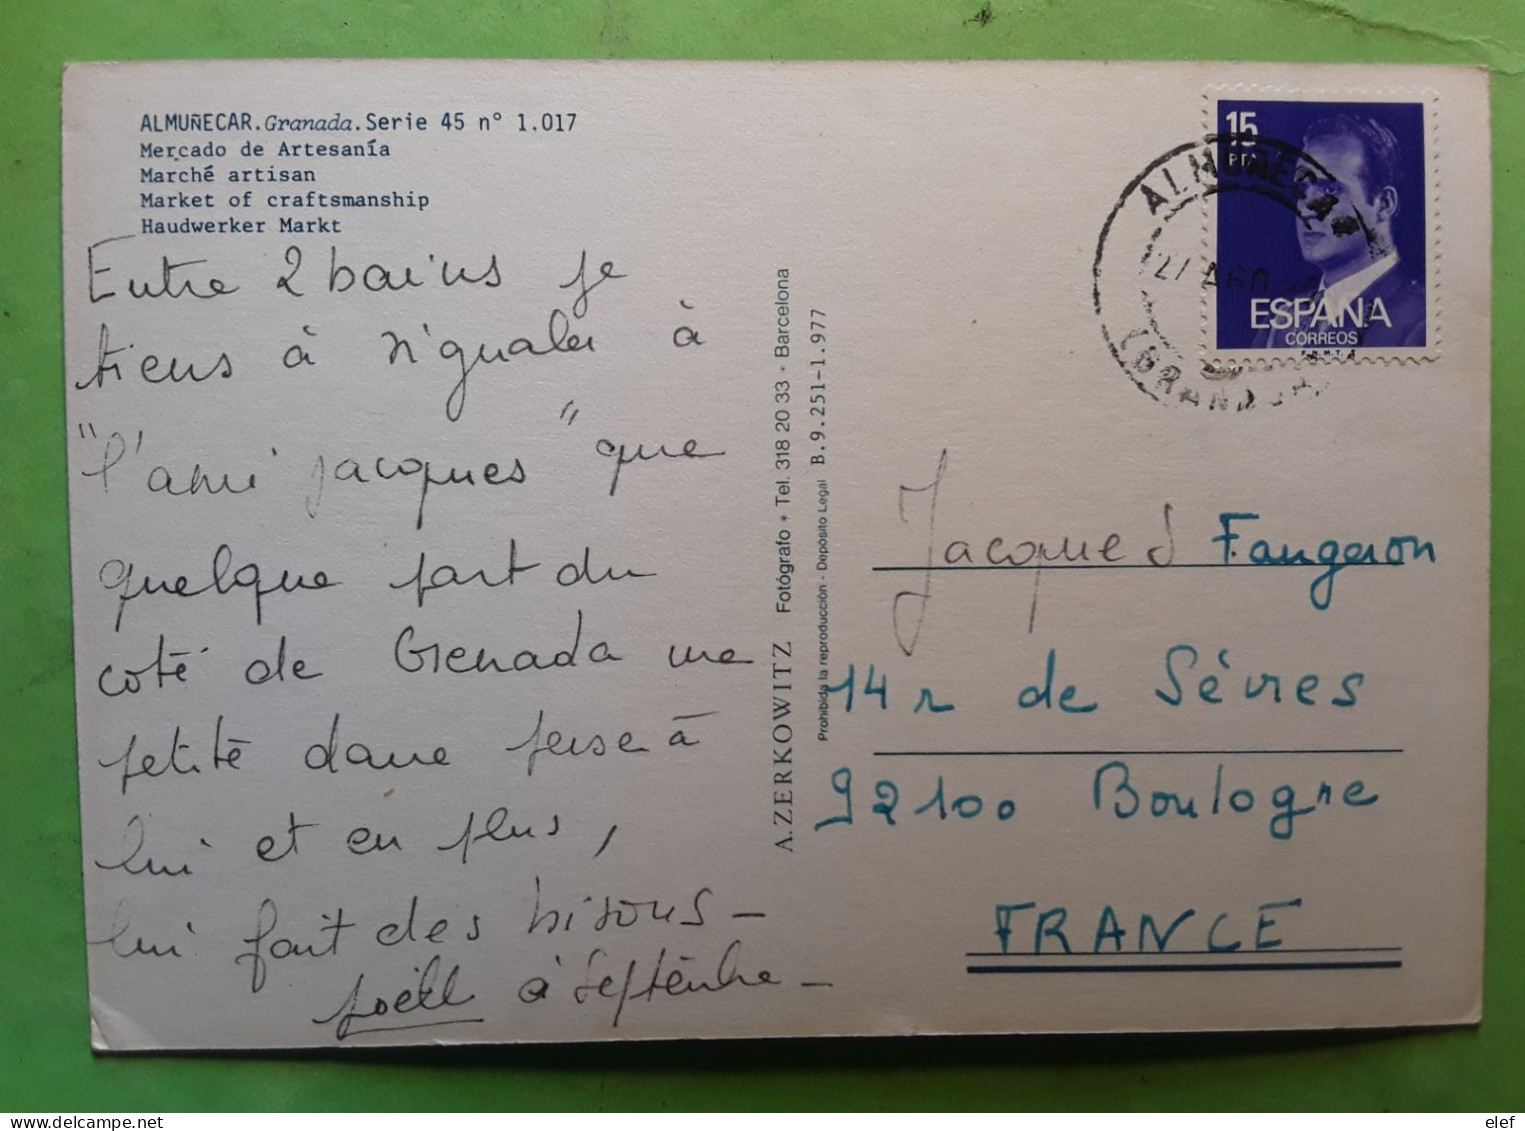 ALMUÑECAR. Granada. Serie 45 nº 1.017
Mercado de Artesanía
Marché artisan
Market of craftsmanship
Haudwerker Markt
Entre 2 bains je
tiens à signaler à
"l'ami jacques" que
quelque part du
coté de Grenada une
petite dame pense à
lui et en plus,
lui fait des bisous -
Joëll à Septembre -
A. ZERKOWITZ Fotógrafo • Tel. 318 20 33 • Barcelona
Prohibida la reproducción - Depósito Legal B.9.251-1.977
15
PTA
ESPAÑA
CORREOS
F.N.M.T.
ALMUÑECAR
27 AGO
(GRANADA)
Jacques Faugeron
14 r de Sèvres
92100 Boulogne
FRANCE
elef